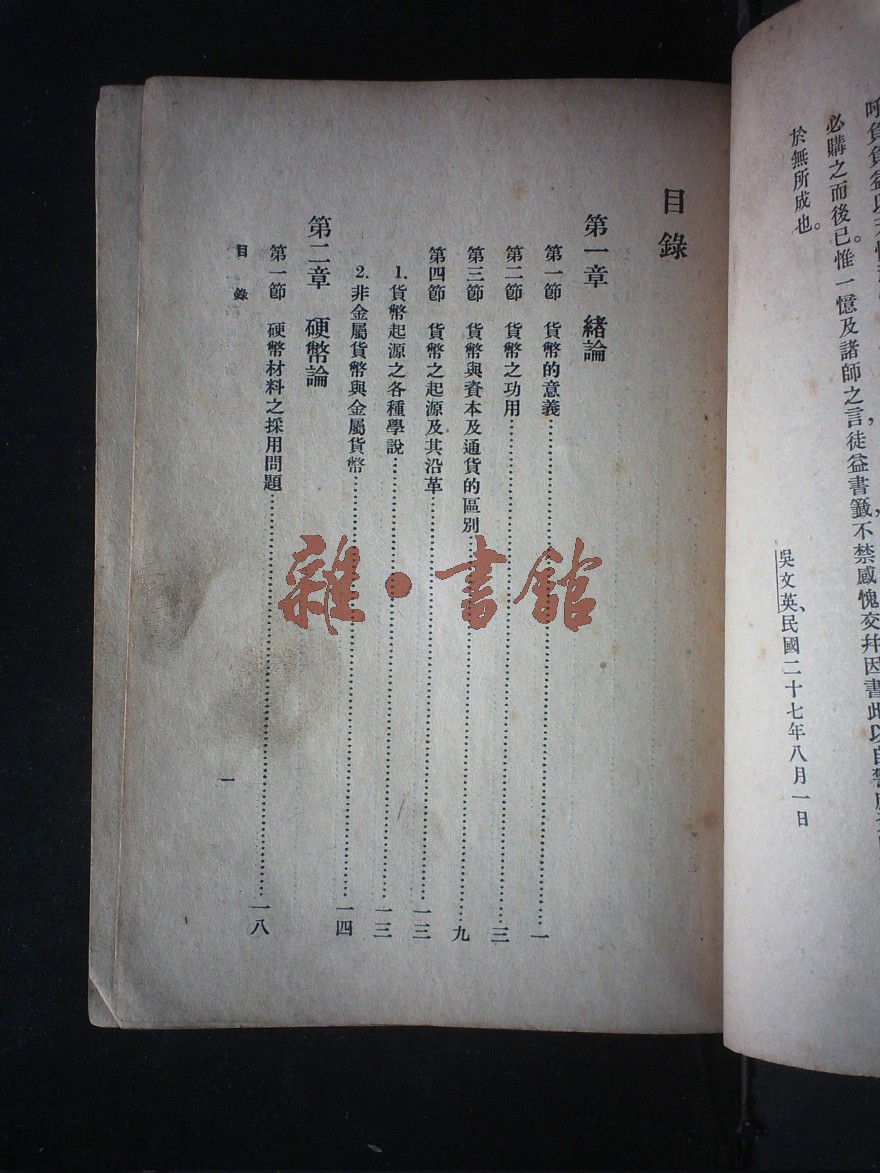 必購之而後已。惟一憶及諸師之言，徒益書籤，不禁感愧交幷因書此以自警
於無所成也。
吳文英、民國二十七年八月一日
目錄
第一章 緒論
第一節 貨幣的意義……一
第二節 貨幣之功用……三
第三節 貨幣與資本及通貨的區別……九
第四節 貨幣之起源及其沿革……一三
1.貨幣起源之各種學說……一三
2.非金屬貨幣與金屬貨幣……一四
第二章 硬幣論
第一節 硬幣材料之採用問題……一八
目錄
一
雜·書館